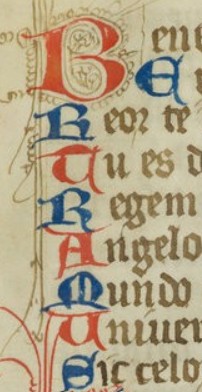 Bene
E
Reor te
Tu es d
Regem
Angelo
Mundo
Uniuer
Sic celo